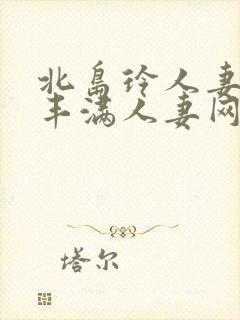 北島玲人妻
丰满人妻网
塔尔